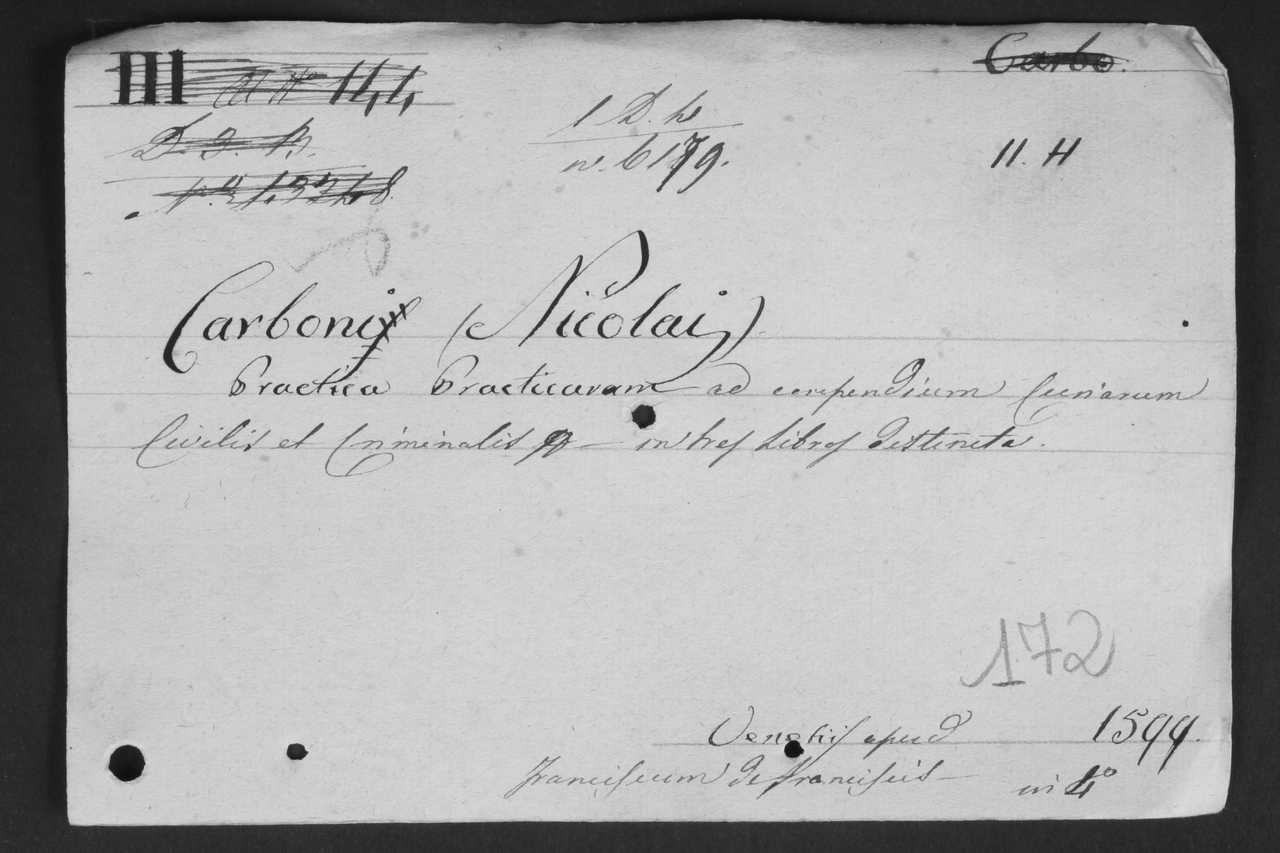 III 44 Carbo.
1 D. h
n. 6179. 11. H
Carboni (Nicolai)
Practica Practicarum ad compendium Curiarum
Civilis et Criminalis — in tres Libros destincta.
172
Venetiis apud 1599.
Franciscum de Franciscis — in 4°